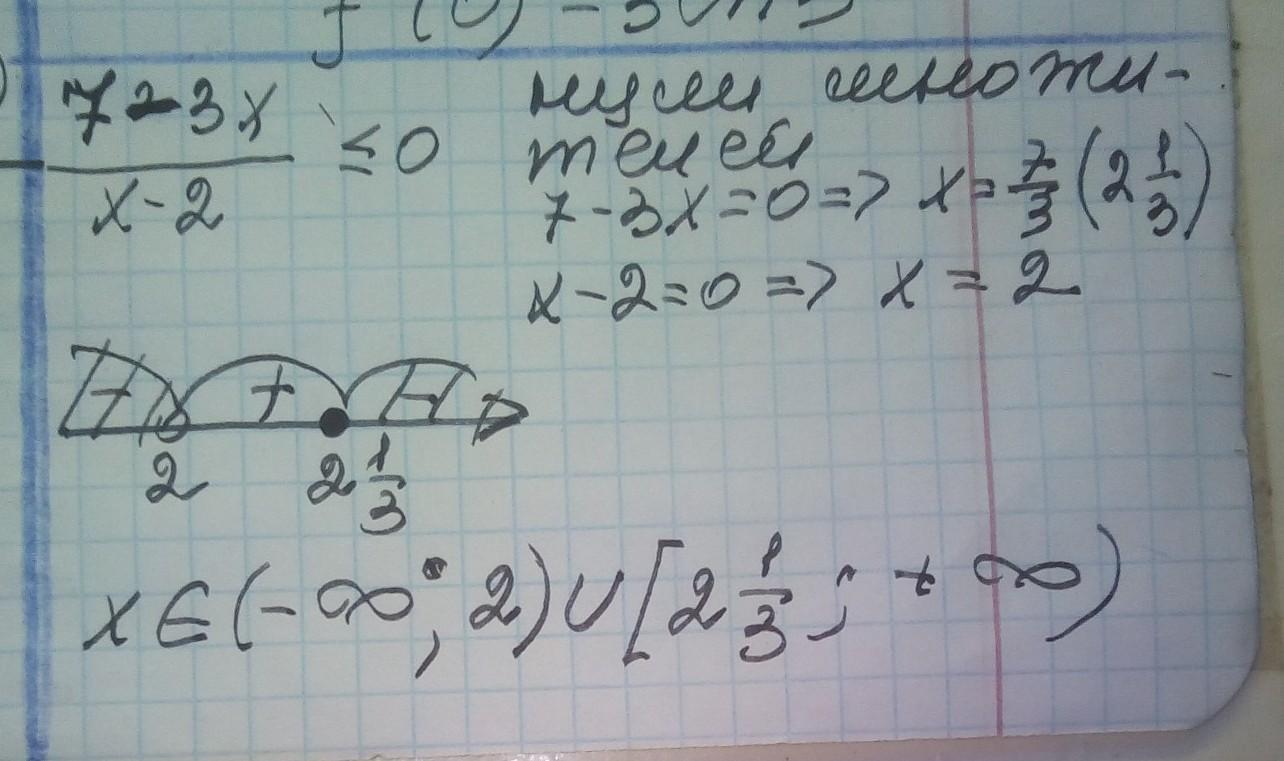 7-3x
x-2
≤0
нули множи-
телей
7-3x=0=> x=7/3(2 1/3)
x-2=0=> x=2
- + -
2 2 1/3
x∈(-∞; 2)∪[2 1/3; +∞)